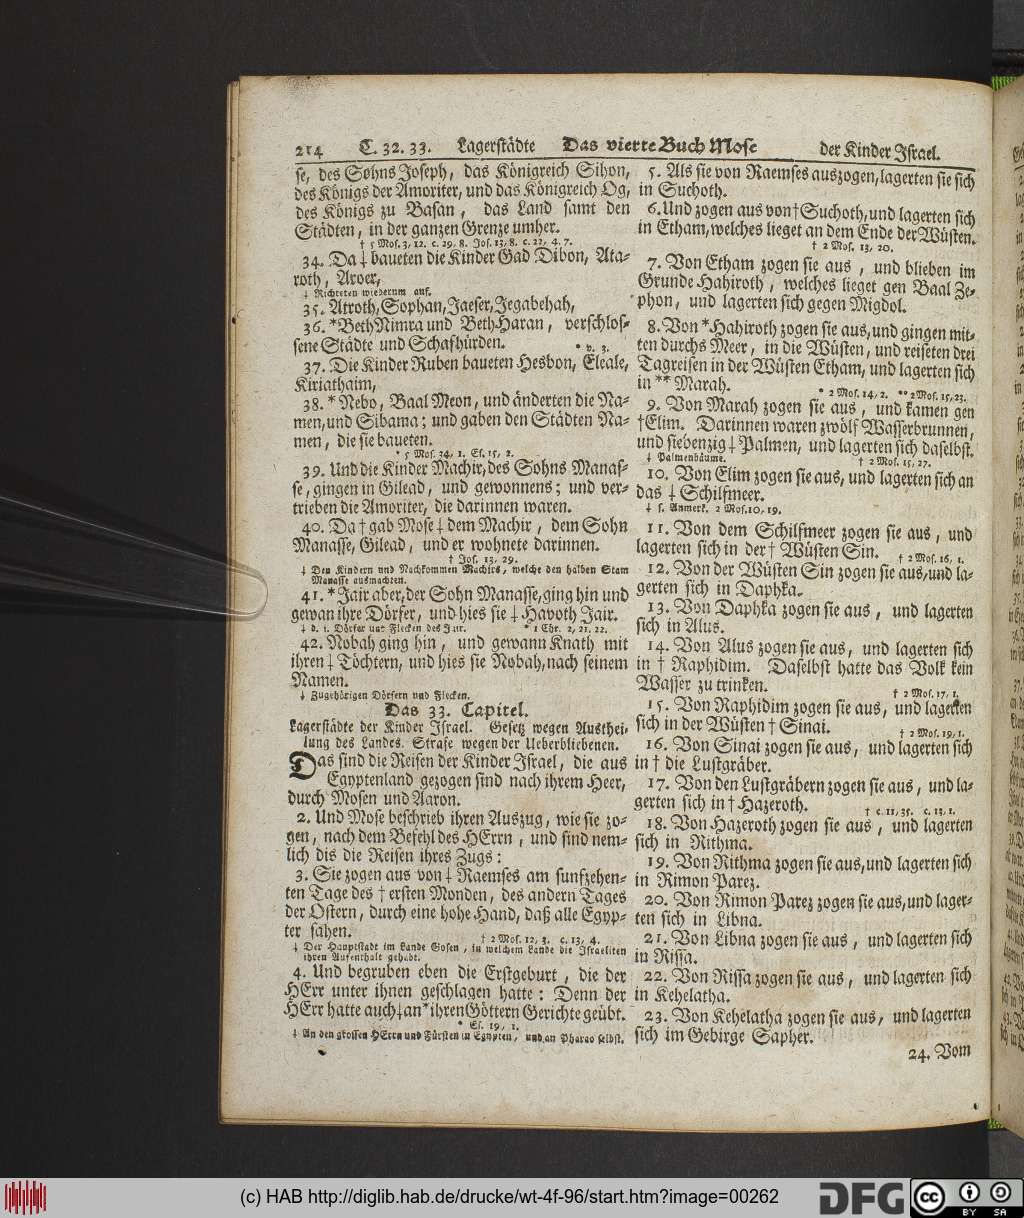 214 C. 32. 33. Lagerstädte Das vierte Buch Mose der Kinder Israel.
se, des Sohns Joseph, das Königreich Sihon,
des Königs der Amoriter, und das Königreich Og,
des Königs zu Basan, das Land samt den
Städten, in der ganzen Grenze umher.
† 5 Mos. 3, 12. c. 29, 8. Jos. 13, 8. c. 22, 4. 7.
34. Da ⸸ baueten die Kinder Gad Dibon, Ata-
roth, Aroer,
⸸ Richteten wiederum auf.
35. Atroth, Sophan, Jaeser, Jegabehah,
36. *BethNimra und BethHaran, verschlos-
sene Städte und Schafhürden. * v. 3.
37. Die Kinder Ruben baueten Hesbon, Eleale,
Kiriathaim,
38. * Nebo, Baal Meon, und änderten die Na-
men, und Sibama; und gaben den Städten Na-
men, die sie baueten.
* 5 Mos. 34, 1. Es. 15, 2.
39. Und die Kinder Machir, des Sohns Manas-
se, gingen in Gilead, und gewonnens; und ver-
trieben die Amoriter, die darinnen waren.
40. Da † gab Mose ⸸ dem Machir, dem Sohn
Manasse, Gilead, und er wohnete darinnen.
† Jos. 13, 29.
⸸ Den Kindern und Nachkommen Machirs, welche den halben Stam
Manasse ausmachten.
41. * Jair aber, der Sohn Manasse, ging hin und
gewan ihre Dörfer, und hies sie ⸸ Havoth Jair.
⸸ d. i. Dörfer und Flecken des Jair. * 1 Chr. 2, 21. 22.
42. Nobah ging hin, und gewann Knath mit
ihren ⸸ Töchtern, und hies sie Nobah, nach seinem
Namen.
⸸ Zugehörigen Dörfern und Flecken.
Das 33. Capitel.
Lagerstädte der Kinder Israel. Gesetz wegen Austhei-
lung des Landes. Strafe wegen der Ueberbliebenen.
Das sind die Reisen der Kinder Israel, die aus
Egyptenland gezogen sind nach ihrem Heer,
durch Mosen und Aaron.
2. Und Mose beschrieb ihren Auszug, wie sie zo-
gen, nach dem Befehl des HErrn, und sind nem-
lich dis die Reisen ihres Zugs:
3. Sie zogen aus von ⸸ Raemses am funfzehen-
ten Tage des † ersten Monden, des andern Tages
der Ostern, durch eine hohe Hand, daß alle Egyp-
ter sahen. † 2 Mos. 12, 3. c. 13, 4.
⸸ Der Hauptstadt im Lande Gosen, in welchem Lande die Israeliten
ihren Aufenthalt gehabt.
4. Und begruben eben die Erstgeburt, die der
HErr unter ihnen geschlagen hatte: Denn der
HErr hatte auch ⸸ an * ihren Göttern Gerichte geübt.
* Es. 19, 1.
⸸ An den grossen HErrn und Fürsten in Egypten, und an Pharao selbst.
5. Als sie von Raemses auszogen, lagerten sie sich
in Suchoth.
6. Und zogen aus von † Suchoth, und lagerten sich
in Etham, welches lieget an dem Ende der Wüsten.
† 2 Mos. 13, 20.
7. Von Etham zogen sie aus, und blieben im
Grunde Hahiroth, welches lieget gen Baal Ze-
phon, und lagerten sich gegen Migdol.
8. Von * Hahiroth zogen sie aus, und gingen mit-
ten durchs Meer, in die Wüsten, und reiseten drei
Tagreisen in der Wüsten Etham, und lagerten sich
in ** Marah. * 2 Mos. 14, 2. ** 2 Mos. 15, 23.
9. Von Marah zogen sie aus, und kamen gen
†Elim. Darinnen waren zwölf Wasserbrunnen,
und siebenzig ⸸ Palmen, und lagerten sich daselbst.
⸸ Palmenbäume. † 2 Mos. 15, 27.
10. Von Elim zogen sie aus, und lagerten sich an
das ⸸ Schilfmeer.
⸸ s. Anmerk. 2 Mos. 10, 19.
11. Von dem Schilfmeer zogen sie aus, und
lagerten sich in der † Wüsten Sin. † 2 Mos. 16, 1.
12. Von der Wüsten Sin zogen sie aus, und la-
gerten sich in Daphka.
13. Von Daphka zogen sie aus, und lagerten
sich in Alus.
14. Von Alus zogen sie aus, und lagerten sich
in † Raphidim. Daselbst hatte das Volk kein
Wasser zu trinken. † 2 Mos. 17, 1.
15. Von Raphidim zogen sie aus, und lagerten
sich in der Wüsten † Sinai. † 2 Mos. 19, 1.
16. Von Sinai zogen sie aus, und lagerten sich
in † die Lustgräber.
17. Von den Lustgräbern zogen sie aus, und la-
gerten sich in † Hazeroth. † c. 11, 35. c. 13, 1.
18. Von Hazeroth zogen sie aus, und lagerten
sich in Rithma.
19. Von Rithma zogen sie aus, und lagerten sich
in Rimon Parez.
20. Von Rimon Parez zogen sie aus, und lager-
ten sich in Libna.
21. Von Libna zogen sie aus, und lagerten sich
in Rissa.
22. Von Rissa zogen sie aus, und lagerten sich
in Kehelatha.
23. Von Kehelatha zogen sie aus, und lagerten
sich im Gebirge Sapher.
24. Vom
(c) HAB http://diglib.hab.de/drucke/wt-4f-96/start.htm?image=00262
DFG
CC BY SA